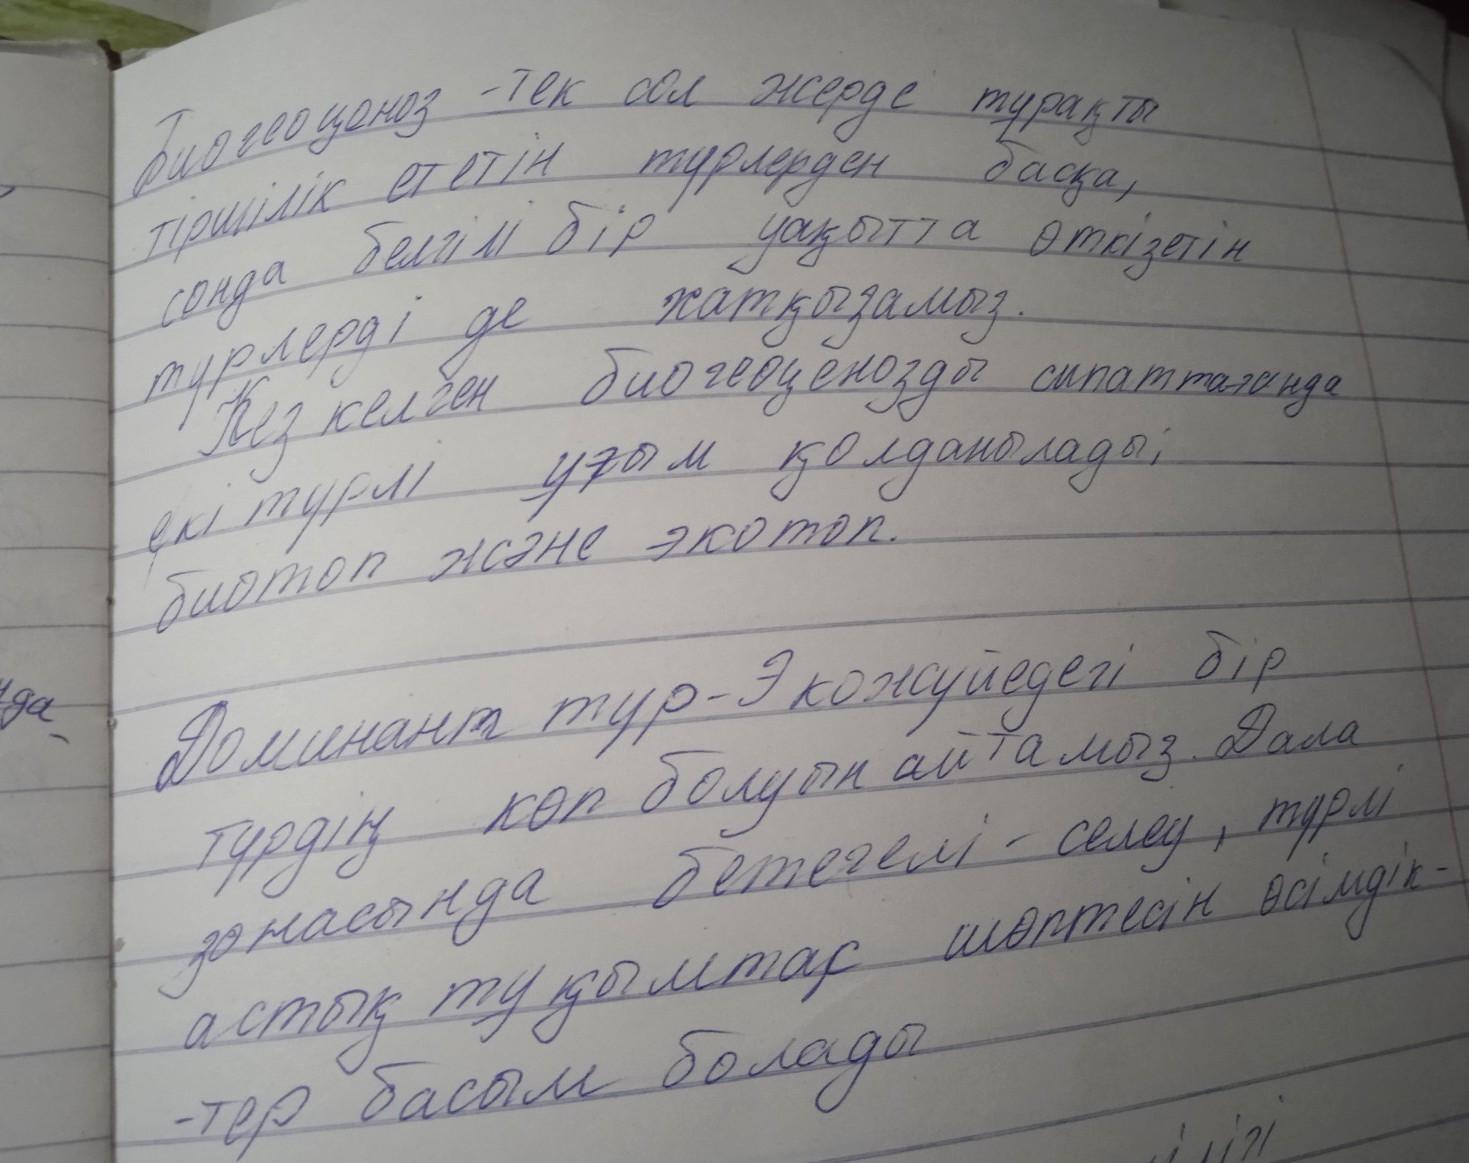 Биогеоценоз -тек сол жерде тұрақты
тіршілік ететін түрлерден басқа,
сонда белгілі бір уақытта өткізетін
түрлерді де жатқызамыз.
Кез келген биогеоценозды сипаттағанда
екі түрлі ұғым қолданылады;
биотоп және экотоп.
Доминант тур-Экожүйедегі бір
түрдің көп болуын айтамыз. Дала
зонасында бетегелі-селеу, түрлі
астық тұқымтас шөптесін өсімдік-
-тер басым болады